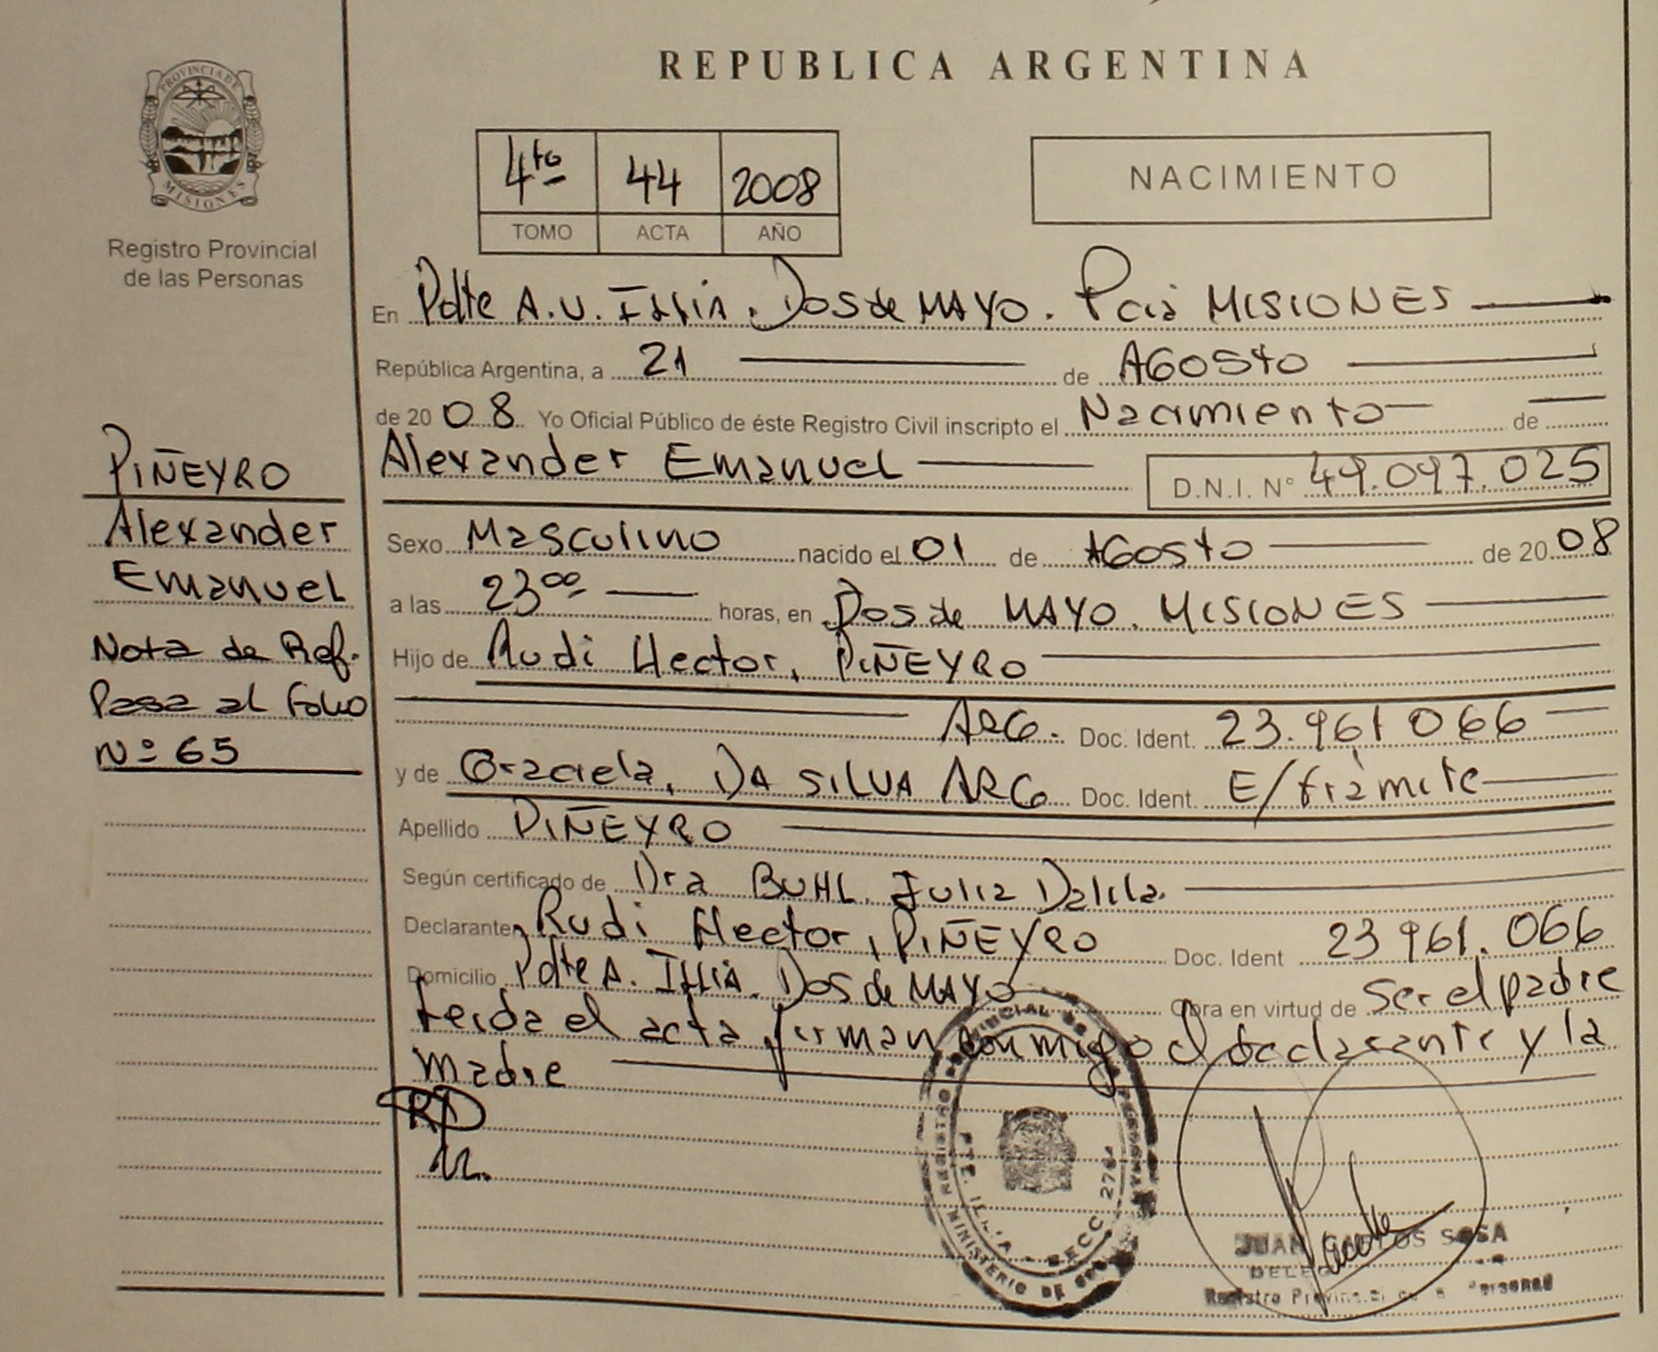 REPUBLICA ARGENTINA
PROVINCIA DE
MISIONES
Registro Provincial
de las Personas
4to 44 2008
TOMO ACTA AÑO
NACIMIENTO
En Pdte A.U. Illia. Dos de MAYO. Pcia MISIONES
República Argentina, a 21 de AGOSto
de 20 08 Yo Oficial Público de éste Registro Civil inscripto el Nacimiento de
Alexander Emanuel D.N.I. N° 49.097.025
Sexo Masculino nacido el 01 de AGosto de 20 08
a las 23oo horas, en Dos de MAYO. MISIONES
Hijo de Rudi Hector, PIÑEYRO
ARG. Doc. Ident. 23.961 066
y de Graciela, DA SILVA ARG Doc. Ident. E/trámite
Apellido PIÑEYRO
Según certificado de Dra BUHL. Julia Dalila.
Declarante Rudi Hector, PIÑEYRO Doc. Ident 23 961.066
Domicilio Pdte A. Illia. Dos de MAYO Obra en virtud de ser el padre
Leida el acta firman conmigo el declarante y la
madre
RP
PIÑEYRO
Alexander
Emanuel
Nota de Ref.
Pasa al Folio
Nº 65
REGISTRO PROVINCIAL DE LAS PERSONAS
MINISTERIO DE GOB
PTE. ILLIA - SECC 2764
JUAN CARLOS SOSA
DELEG
Registro Provincial de Personas